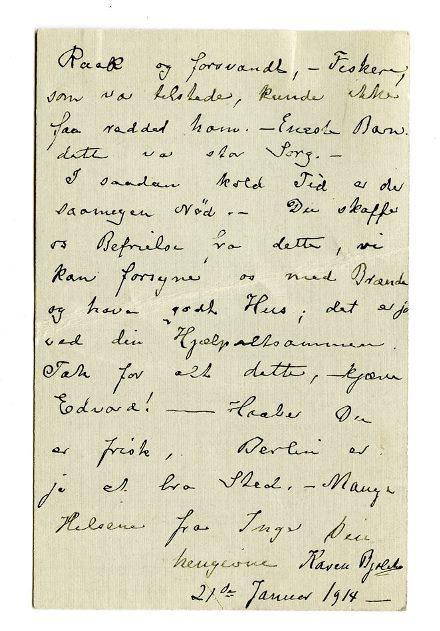 Raak og forsvandt, – Fiskere,
som va tilstede, kunde ikke
faa reddet ham. – Eneste Barn.
dette va stor Sorg. –
I saadan kold Tid er der
saamegen Nød. – Du skaffe
os Befrielse fra dette, vi
kan forsyne os med Brænde
og have godt Hus; det er jo
ved din Hjælp altsammen.
Tak for alt dette, – kjære
Edvard! — Haaber Du
er frisk, Berlin er
jo et bra Sted. – Mange
Hilsener fra Inger Din
hengivne Karen Bjølstad
21de Januar 1914 —